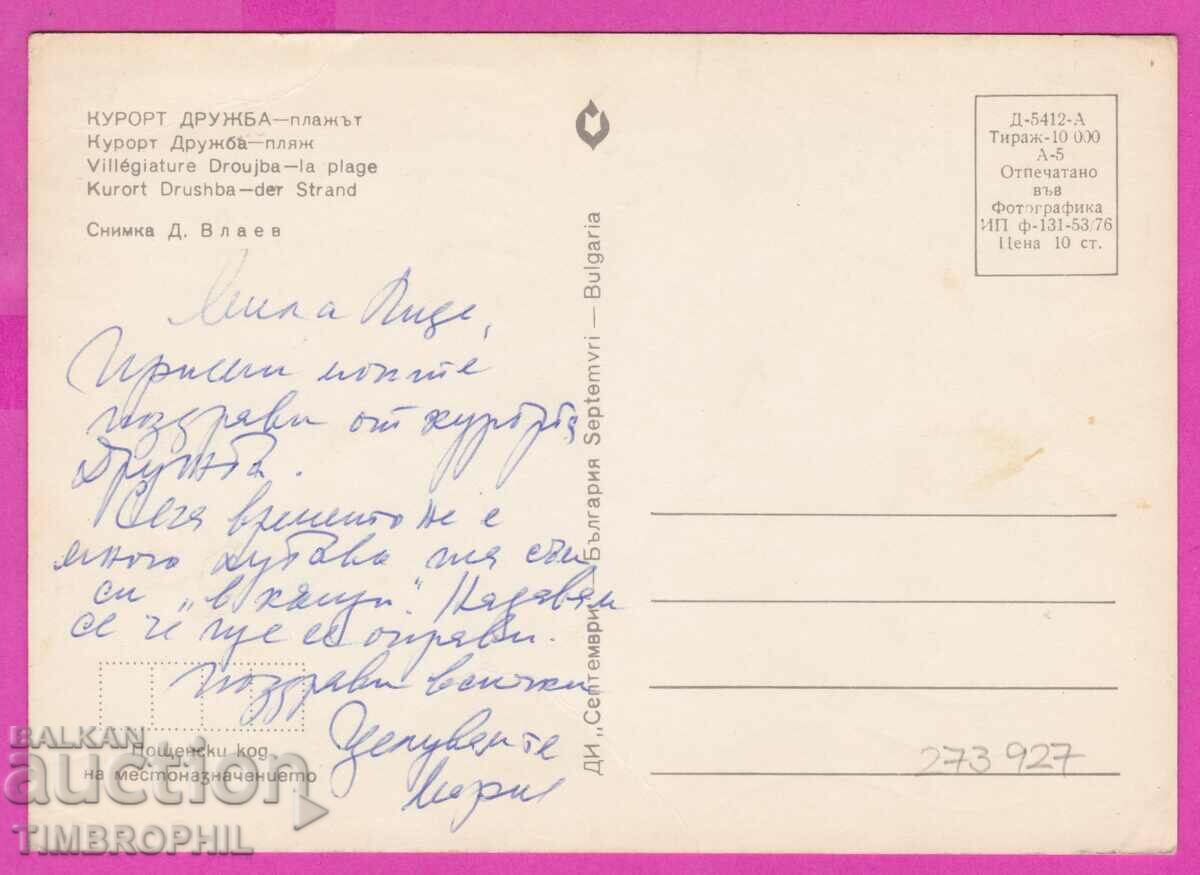 КУРОРТ ДРУЖБА—плажът
Курорт Дружба—пляж
Villégiature Droujba—la plage
Kurort Drushba—der Strand
Снимка Д. Влаев
Д-5412-А
Тираж-10 000
А-5
Отпечатано
във
Фотографика
ИП ф-131-53/76
Цена 10 ст.
Мила
Приеми моите
поздрави от курорта
Дружба.
Сега времето не е
много хубаво съм
си „в кащи". Надявам
се че ще се оправи.
Поздрави всички
Целувам те
Мария
Пощенски код
на местоназначението
ДИ „Септември"—България Septemvri — Bulgaria
273 927
BALKAN
auction
TIMBROPHIL